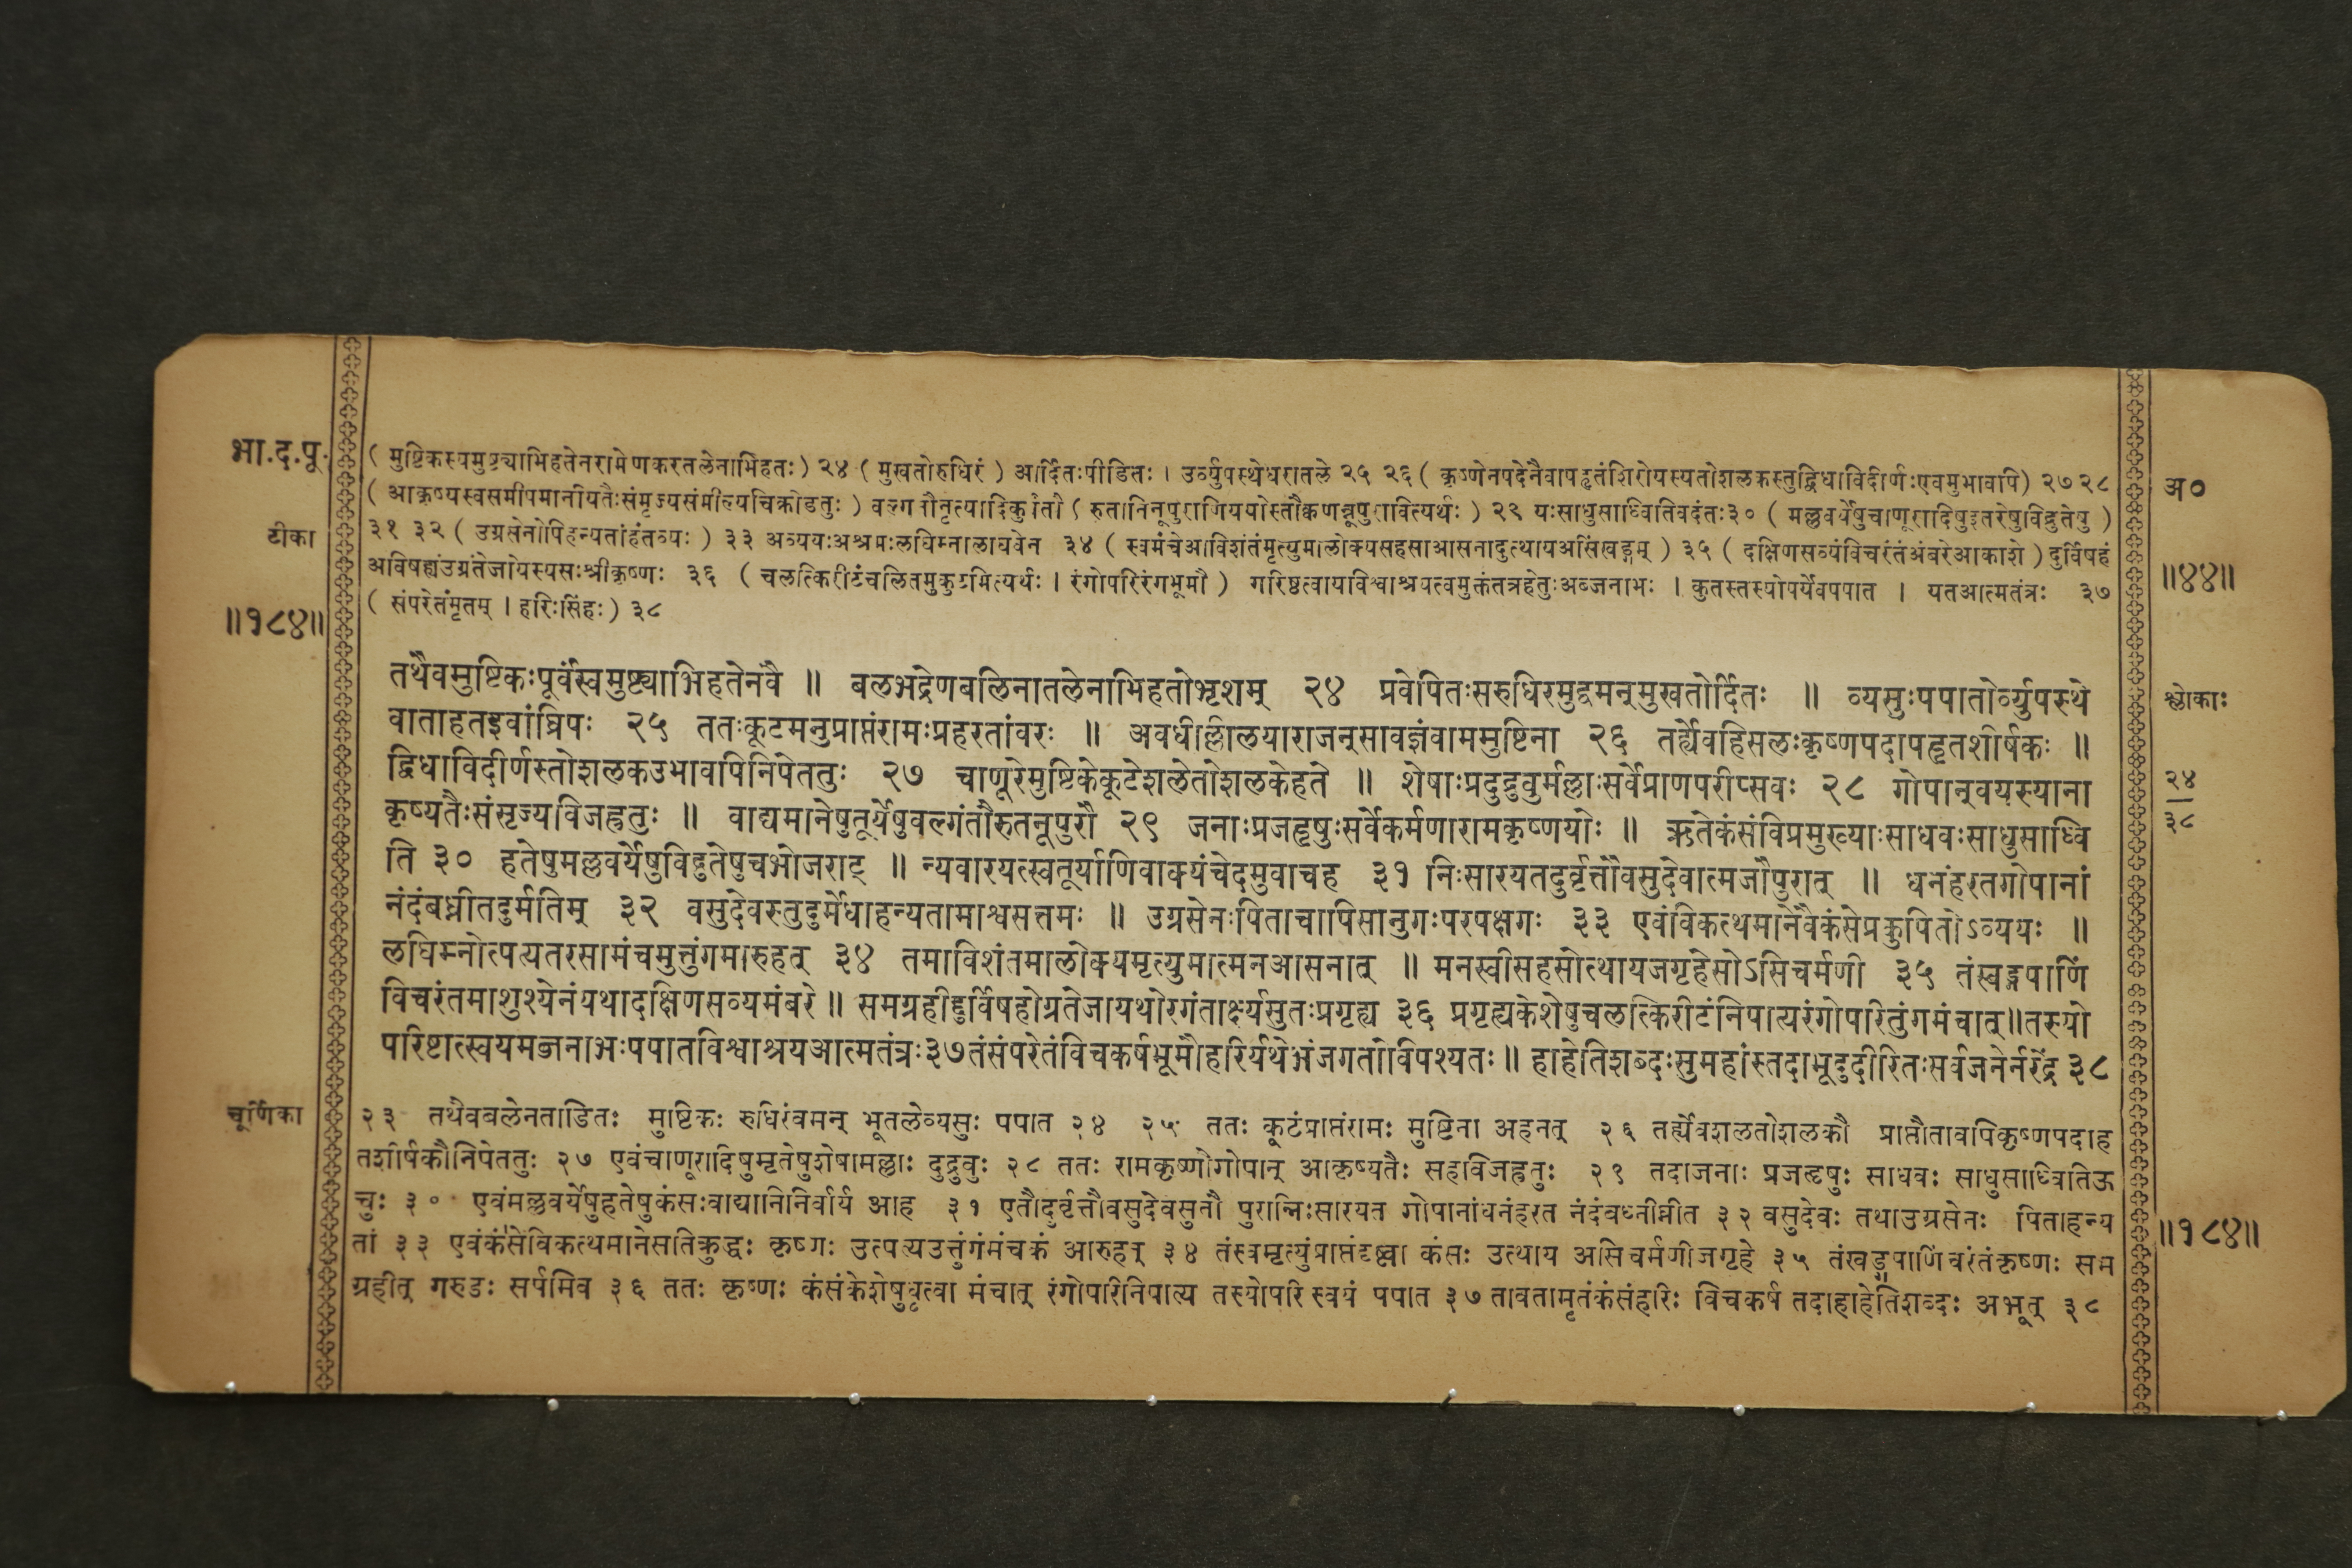 भा.द.पू.
टीका
॥१८४॥
( मुष्टिकस्यमुष्ट्याभिहतेनरामेणकरतलेनाभिहतः ) २४ ( मुखतोरुधिरं ) आर्दितःपीडितः । उर्व्युपस्थेधरातले २५ २६ ( कृष्णेनपदेनैवापहृतंशिरोयस्यतोशलकस्तुद्विधाविदीर्णःएवमुभावपि) २७ २८
( आकृष्यस्वसमीपमानीयतैःसंमृज्यसंमील्यचिक्रीडतुः ) वल्गंतौनृत्यादिकुर्वंतौ ( रुतानिनूपुराणिययोस्तौक्वणन्नूपुरावित्यर्थः ) २९ यःसाधुसाध्वितिवदंतः३० ( मल्लवर्येषुचाणूरादिषुइतरेषुविद्रुतेषु )
३१ ३२ ( उग्रसेनोपिहन्यतांहंतव्यः ) ३३ अव्ययःअश्रमःलघिम्नालाघवेन ३४ ( स्वमंचेआविशंतंमृत्युमालोक्यसहसाआसनादुत्थायअसिंखड्गम् ) ३५ ( दक्षिणसव्यंविचरंतंअंबरेआकाशे ) दुर्विषहं
अविषह्यंउग्रंतेजोयस्यसःश्रीकृष्णः ३६ ( चलत्किरीटंचलितमुकुटमित्यर्थः । रंगोपरिरंगभूमौ ) गरिष्ठत्वायविश्वाश्रयत्वमुक्तंतत्रहेतुःअब्जनाभः । कुतस्तस्योपर्येवपपात । यतआत्मतंत्रः ३७
( संपरेतंमृतम् । हरिःसिंहः ) ३८
तथैवमुष्टिकःपूर्वंस्वमुष्ट्याभिहतेनवै ॥ बलभद्रेणबलिनातलेनाभिहतोभृशम् २४ प्रवेपितःसरुधिरमुद्वमन्मुखतोर्दितः ॥ व्यसुःपपातोर्व्युपस्थे
वाताहतइवांघ्रिपः २५ ततःकूटमनुप्राप्तंरामःप्रहरतांवरः ॥ अवधील्लीलयाराजन्सावज्ञंवाममुष्टिना २६ तर्ह्येवहिसलःकृष्णपदापहृतशीर्षकः ॥
द्विधाविदीर्णस्तोशलकउभावपिनिपेततुः २७ चाणूरेमुष्टिकेकूटेशलेतोशलकेहते ॥ शेषाःप्रदुद्रुवुर्मल्लाःसर्वेप्राणपरीप्सवः २८ गोपान्वयस्याना
कृष्यतैःसंसृज्यविजह्रतुः ॥ वाद्यमानेषुतूर्येषुवल्गंतौरुतनूपुरौ २९ जनाःप्रजहृषुःसर्वेकर्मणारामकृष्णयोः ॥ ऋतेकंसंविप्रमुख्याःसाधवःसाधुसाध्वि
ति ३० हतेषुमल्लवर्येषुविद्रुतेषुचभोजराट् ॥ न्यवारयत्स्वतूर्याणिवाक्यंचेदमुवाचह ३१ निःसारयतदुर्वृत्तौवसुदेवात्मजौपुरात् ॥ धनंहरतगोपानां
नंदंबध्नीतदुर्मतिम् ३२ वसुदेवस्तुदुर्मेधाहन्यतामाश्वसत्तमः ॥ उग्रसेनःपिताचापिसानुगःपरपक्षगः ३३ एवंविकत्थमानेवैकंसेप्रकुपितोऽव्ययः ॥
लघिम्नोत्पत्यतरसामंचमुत्तुंगमारुहत् ३४ तमाविशंतमालोक्यमृत्युमात्मनआसनात् ॥ मनस्वीसहसोत्थायजगृहेसोऽसिचर्मणी ३५ तंखड्गपाणिं
विचरंतमाशुश्येनंयथादक्षिणसव्यमंबरे ॥ समग्रहीद्दुर्विषहोग्रतेजायथोरगंतार्क्ष्यसुतःप्रगृह्य ३६ प्रगृह्यकेशेषुचलत्किरीटंनिपात्यरंगोपरितुंगमंचात्॥तस्यो
परिष्टात्स्वयमब्जनाभःपपातविश्वाश्रयआत्मतंत्रः३७तंसंपरेतंविचकर्षभूमौहरिर्यथेभंजगतोविपश्यतः ॥ हाहेतिशब्दःसुमहांस्तदाभूदुदीरितःसर्वजनैर्नरेंद्र ३८
चूर्णिका
२३ तथैवबलेनताडितः मुष्टिकः रुधिरंवमन् भूतलेव्यसुः पपात २४ २५ ततः कूटंप्राप्तंरामः मुष्टिना अहनत् २६ तर्ह्येवशलतोशलकौ प्राप्तौतावपिकृष्णपदाह
तशीर्षकौनिपेततुः २७ एवंचाणूरादिषुमृतेषुशेषामल्लाः दुद्रुवुः २८ ततः रामकृष्णौगोपान् आकृष्यतैः सहविजह्रतुः २९ तदाजनाः प्रजहृषुः साधवः साधुसाध्वितिऊ
चुः ३० एवंमल्लवर्येषुहतेषुकंसःवाद्यानिनिर्वार्य आह ३१ एतौदुर्वृत्तौवसुदेवसुतौ पुरान्निःसारयत गोपानांधनंहरत नंदंबध्नीत ३२ वसुदेवः तथाउग्रसेनः पिताहन्य
तां ३३ एवंकंसेविकत्थमानेसतिक्रुद्धः कृष्णः उत्पत्यउत्तुंगंमंचकं आरुहत् ३४ तंस्वमृत्युंप्राप्तंदृष्ट्वा कंसः उत्थाय असिचर्मणीजगृहे ३५ तंखड्गपाणिंचरंतंकृष्णः सम
ग्रहीत् गरुडः सर्पमिव ३६ ततः कृष्णः कंसंकेशेषुधृत्वा मंचात् रंगोपरिनिपात्य तस्योपरि स्वयं पपात ३७ तावतामृतंकंसंहरिः विचकर्ष तदाहाहेतिशब्दः अभूत् ३८
अ०
॥४४॥
श्लोकाः
२४
३८
॥१८४॥